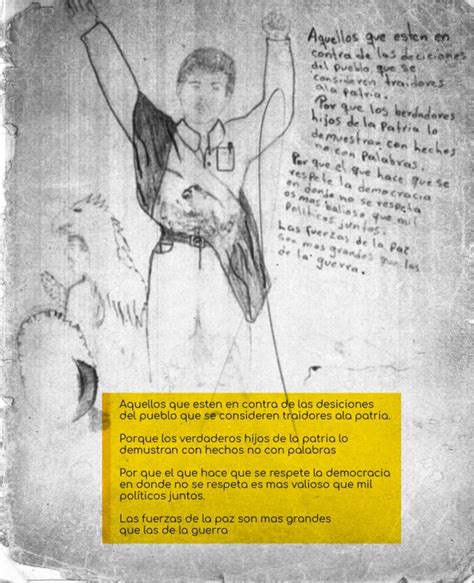 Aquellos que esten en
contra de las deciciones
del pueblo que se
consideren traidores
ala patria.
Por que los berdaderos
hijos de la Patria lo
demuestran con hechos
no con Palabras.
Por que el que hace que se
respete la democracia
en donde no se respeta
es mas balioso que mil
Politicos juntos.
Las fuerzas de la Paz
son mas grandes que las
de la guerra.
Aquellos que esten en contra de las desiciones
del pueblo que se consideren traidores ala patria.
Porque los verdaderos hijos de la patria lo
demustran con hechos no con palabras
Por que el que hace que se respete la democracia
en donde no se respeta es mas valioso que mil
políticos juntos.
Las fuerzas de la paz son mas grandes
que las de la guerra